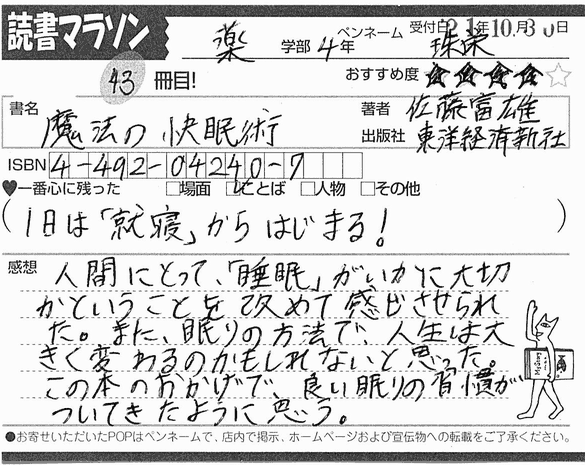 読書マラソン
薬 学部 4年 ペンネーム 珠栄 受付日 21年10月30日
43 冊目! おすすめ度 ★★★★☆
書名 魔法の快眠術
著者 佐藤富雄
出版社 東洋経済新社
ISBN 4-492-04240-7
♥一番心に残った □場面 ☑ことば □人物 □その他
(1日は「就寝」からはじまる!)
感想 人間にとって、「睡眠」がいかに大切
かということを改めて感じさせられ
た。また、眠りの方法で、人生は大
きく変わるのかもしれないと思った。
この本のおかげで、良い眠りの習慣が
ついてきたように思う。
●お寄せいただいたPOPはペンネームで、店内で掲示、ホームページおよび宣伝物への転載をご了承ください。